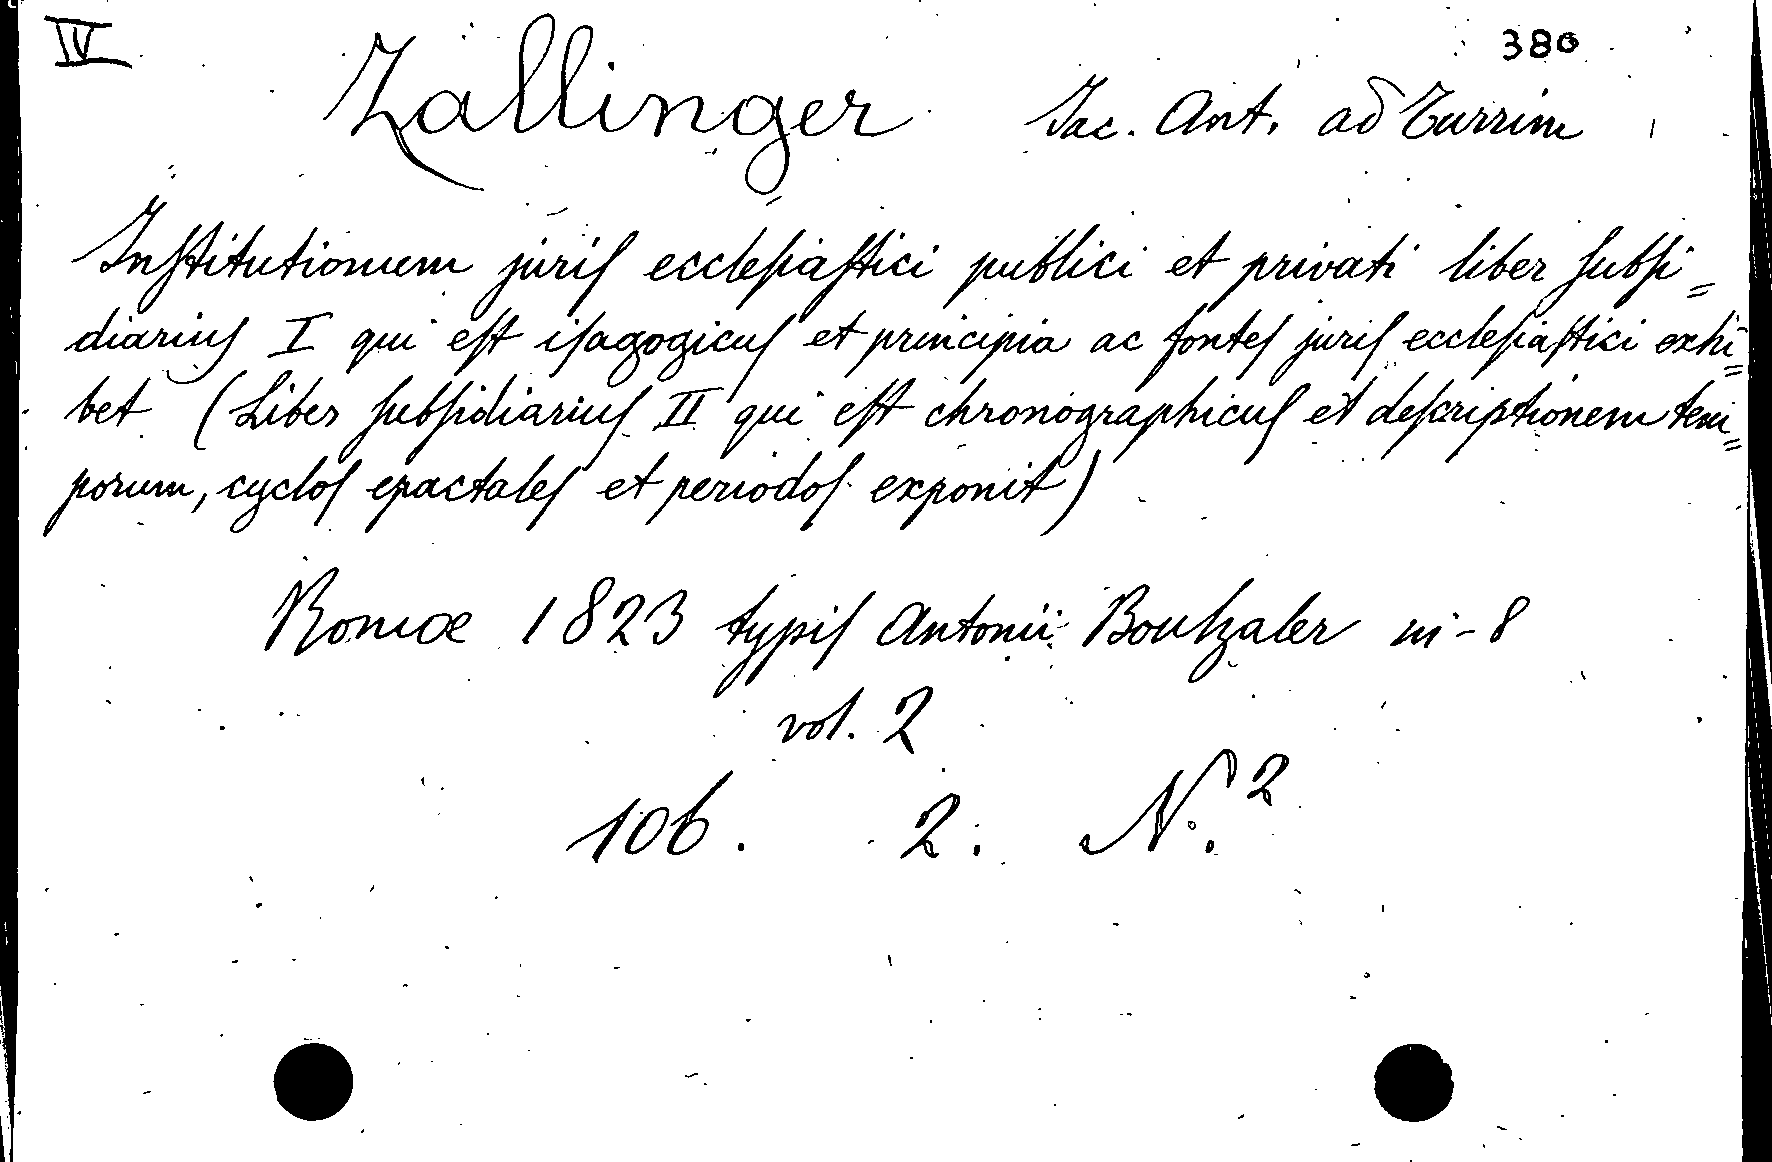 IV
380
Zallinger Jac. Ant. ad Turrim
Inſtitutionum juriſ eccleſiaſtici publici et privati liber ſubſi=
diariuſ I qui eſt iſagogicuſ et principia ac fonteſ juriſ eccleſiaſtici exhi=
bet (Liber ſubſidiariuſ II qui eſt chronographicuſ et deſcriptionem tem=
porum, cycloſ epactaleſ et periodoſ exponit)
Romæ 1823 typiſ Antonii Boulzaler in-8
vol. 2
106. 2. N.º 2